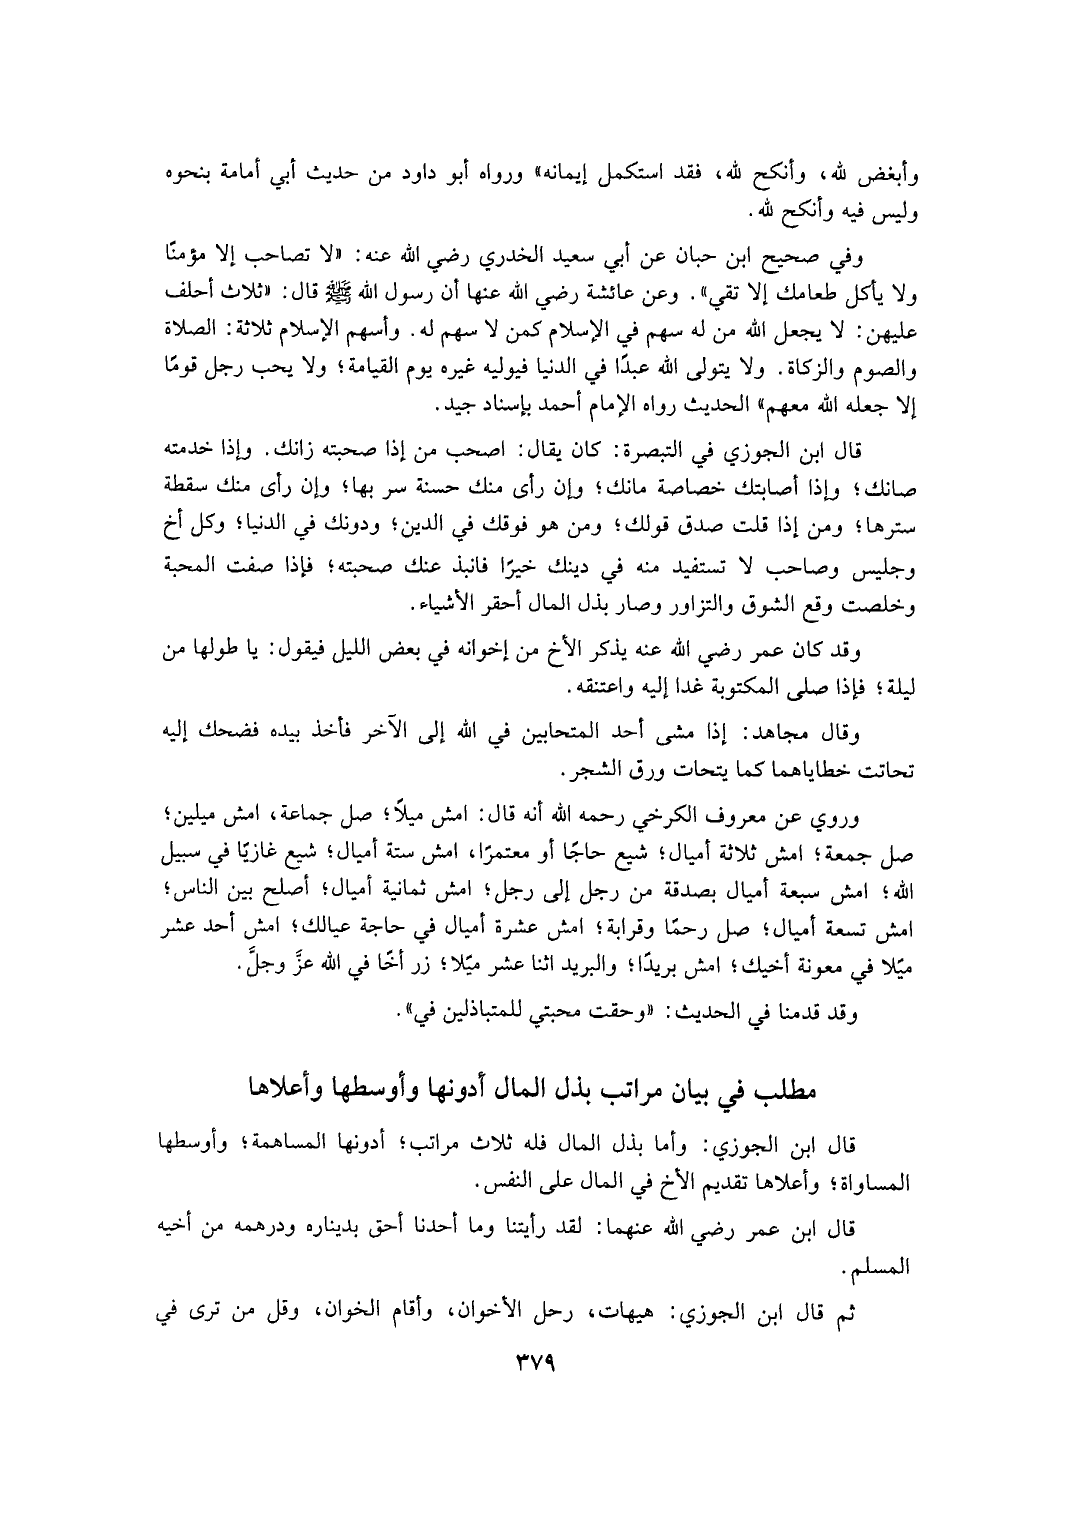 وأبغض لله، وأنكح لله، فقد استكمل إيمانه» ورواه أبو داود من حديث أبي أمامة بنحوه
وليس فيه وأنكح لله.
وفي صحيح ابن حبان عن أبي سعيد الخدري رضي الله عنه: «لا تصاحب إلا مؤمنًا
ولا يأكل طعامك إلا تقي». وعن عائشة رضي الله عنها أن رسول الله ﷺ قال: «ثلاث أحلف
عليهن: لا يجعل الله من له سهم في الإسلام كمن لا سهم له. وأسهم الإسلام ثلاثة: الصلاة
والصوم والزكاة. ولا يتولى الله عبدًا في الدنيا فيوليه غيره يوم القيامة؛ ولا يحب رجل قومًا
إلا جعله الله معهم» الحديث رواه الإمام أحمد بإسناد جيد.
قال ابن الجوزي في التبصرة: كان يقال: اصحب من إذا صحبته زانك. وإذا خدمته
صانك؛ وإذا أصابتك خصاصة مانك؛ وإن رأى منك حسنة سر بها؛ وإن رأى منك سقطة
سترها؛ ومن إذا قلت صدق قولك؛ ومن هو فوقك في الدين؛ ودونك في الدنيا؛ وكل أخ
وجليس وصاحب لا تستفيد منه في دينك خيرًا فانبذ عنك صحبته؛ فإذا صفت المحبة
وخلصت وقع الشوق والتزاور وصار بذل المال أحقر الأشياء.
وقد كان عمر رضي الله عنه يذكر الأخ من إخوانه في بعض الليل فيقول: يا طولها من
ليلة؛ فإذا صلى المكتوبة غدا إليه واعتنقه.
وقال مجاهد: إذا مشى أحد المتحابين في الله إلى الآخر فأخذ بيده فضحك إليه
تحاتت خطاياهما كما يتحات ورق الشجر.
وروي عن معروف الكرخي رحمه الله أنه قال: امش ميلاً؛ صل جماعة، امش ميلين؛
صل جمعة؛ امش ثلاثة أميال؛ شيع حاجًا أو معتمرًا، امش ستة أميال؛ شيع غازيًا في سبيل
الله؛ امش سبعة أميال بصدقة من رجل إلى رجل؛ امش ثمانية أميال؛ أصلح بين الناس؛
امش تسعة أميال؛ صل رحمًا وقرابة؛ امش عشرة أميال في حاجة عيالك؛ امش أحد عشر
ميًلا في معونة أخيك؛ امش بريدًا؛ والبريد اثنا عشر ميًلا؛ زر أخًا في الله عزَّ وجلَّ.
وقد قدمنا في الحديث: «وحقت محبتي للمتباذلين في».
مطلب في بيان مراتب بذل المال أدونها وأوسطها وأعلاها
قال ابن الجوزي: وأما بذل المال فله ثلاث مراتب؛ أدونها المساهمة؛ وأوسطها
المساواة؛ وأعلاها تقديم الأخ في المال على النفس.
قال ابن عمر رضي الله عنهما: لقد رأيتنا وما أحدنا أحق بديناره ودرهمه من أخيه
المسلم.
ثم قال ابن الجوزي: هيهات، رحل الأخوان، وأقام الخوان، وقل من ترى في
٣٧٩